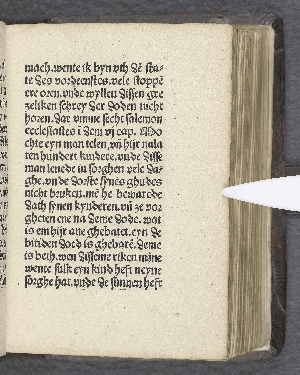 mach. wente ik byn vth dē sta-
te des vordenstes. vele stoppē
ere oren. vnde wyllen dissen gre
zeliken schrey der doden nicht
horen. dar vmme secht salemon
ecclesiastes ī dem vj cap. Mo
chte eyn man telen. vñ hijr nala
ten hundert kindere. vnde disse
man leuede in sorghen vele dar-
ghe. vnde dorste synes ghudes
nicht bruken. mē he bewarede
dath synen kynderen. vñ ze vor
gheten ene na deme dode. wat
is em hijr ane ghebatet. eyn de
bitiden doed is ghebarē. deme
is beth. wen disseme riken māne
wente sulk eyn kind heft neyne
sorghe hat. vnde de sunnen heft